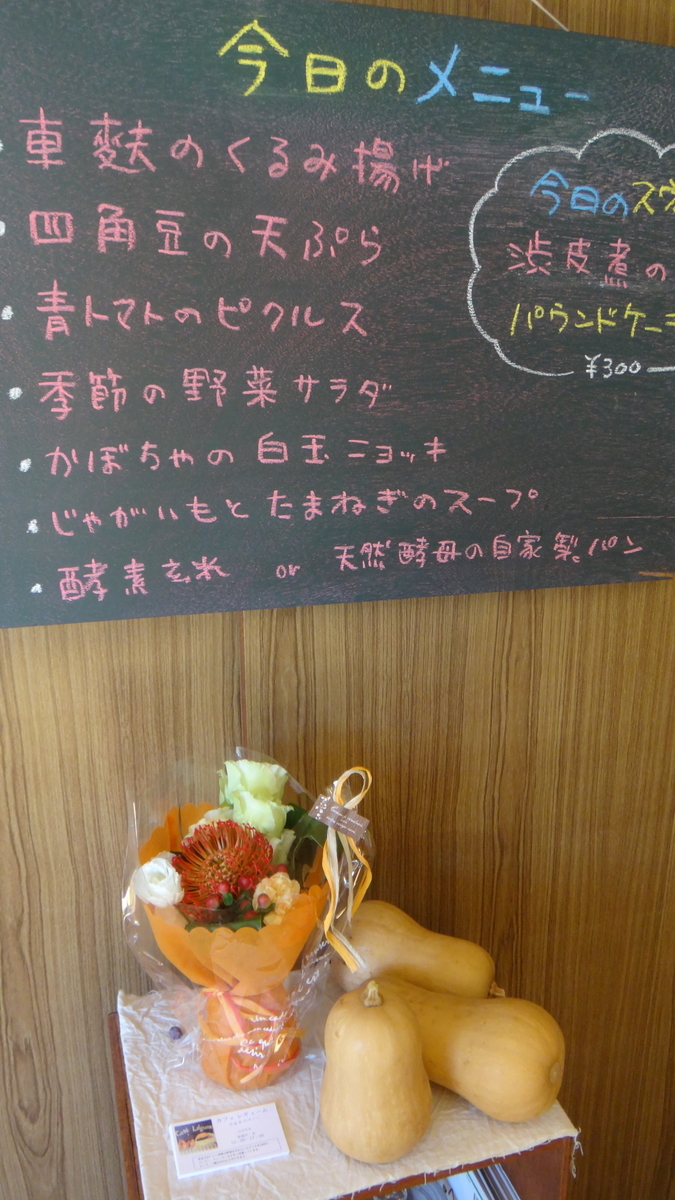 今日のメニュー
・車麩のくるみ揚げ
・四角豆の天ぷら
・青トマトのピクルス
・季節の野菜サラダ
・かぼちゃの白玉ニョッキ
・じゃがいもとたまねぎのスープ
・酵素玄米 or 天然酵母の自家製パン
今日のスウ
渋皮煮の
パウンドケーキ
¥300